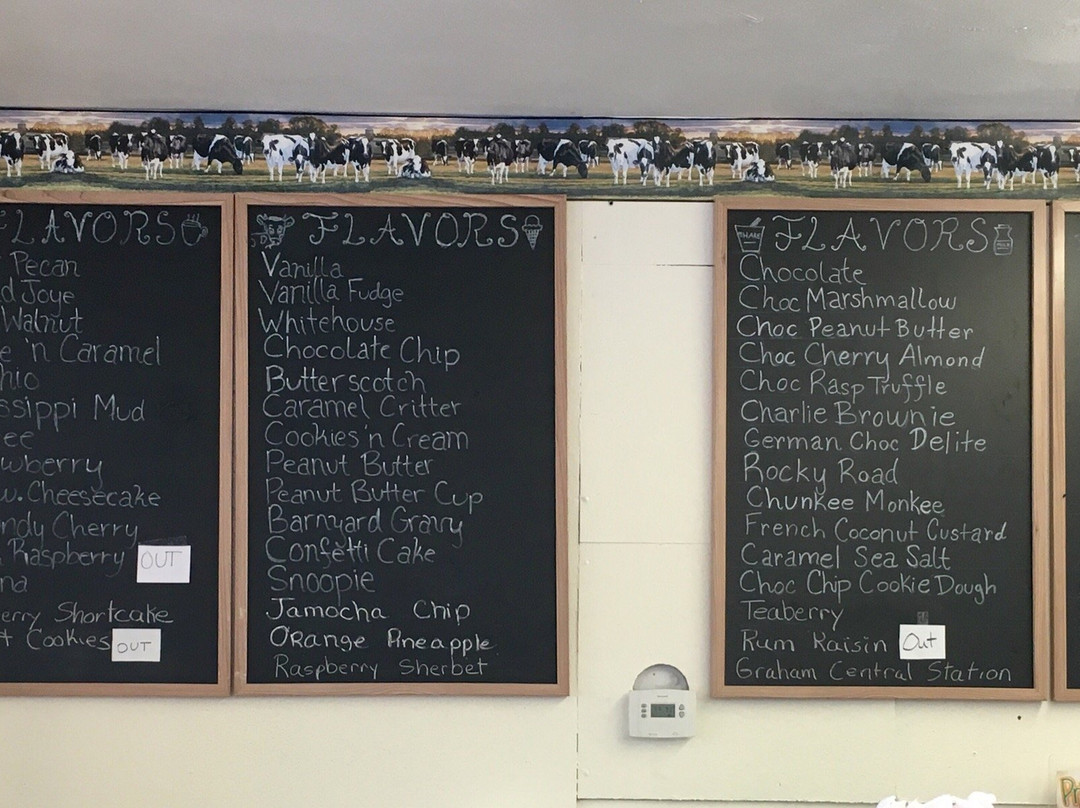 FLAVORS
Pecan
d Joye
Walnut
e 'n Caramel
hio
ssippi Mud
ee
wberry
w. Cheesecake
ndy Cherry
Raspberry OUT
na
erry Shortcake
Cookies OUT
FLAVORS
Vanilla
Vanilla Fudge
Whitehouse
Chocolate Chip
Butterscotch
Caramel Critter
Cookies 'n Cream
Peanut Butter
Peanut Butter Cup
Barnyard Gravy
Confetti Cake
Snoopie
Jamocha Chip
Orange Pineapple
Raspberry Sherbet
SHAKE FLAVORS
Chocolate
Choc Marshmallow
Choc Peanut Butter
Choc Cherry Almond
Choc Rasp Truffle
Charlie Brownie
German Choc Delite
Rocky Road
Chunkee Monkee
French Coconut Custard
Caramel Sea Salt
Choc Chip Cookie Dough
Teaberry
Rum Raisin Out
Graham Central Station